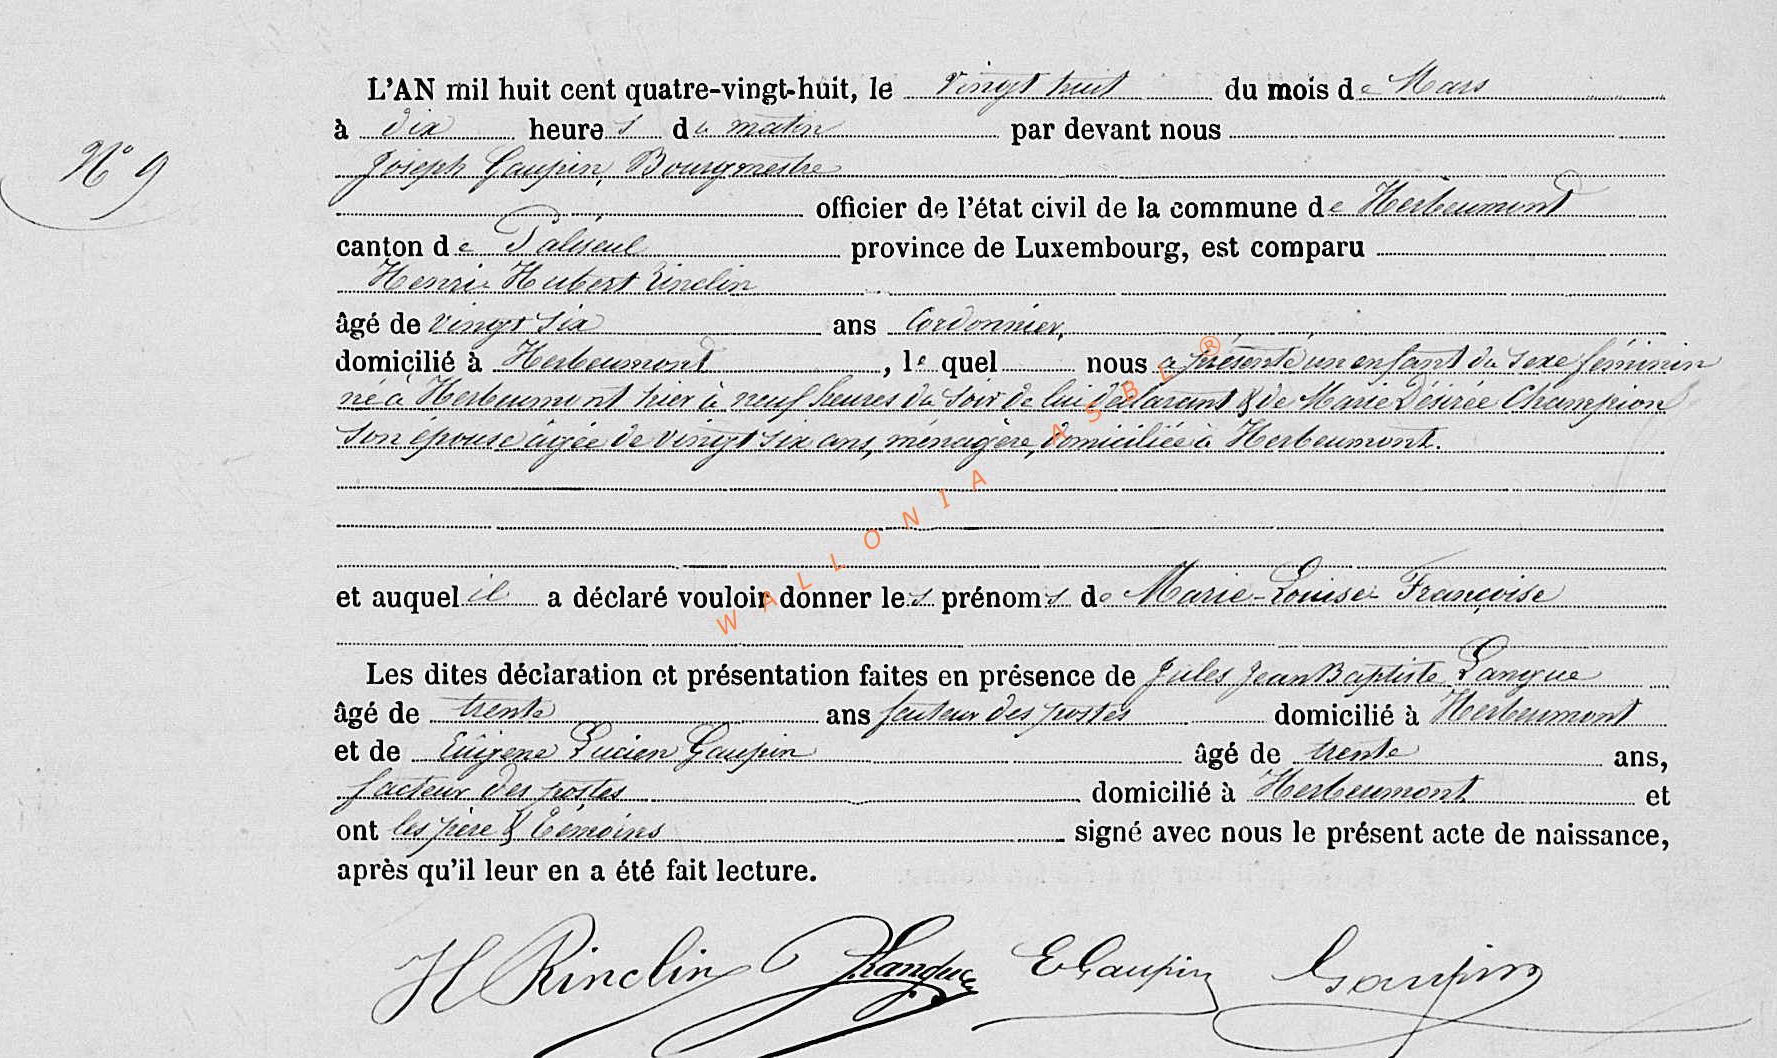 L'AN mil huit cent quatre-vingt-huit, le vingt huit du mois de Mars
à dix heures du matin par devant nous
N° 9
Joseph Gaupin, Bourgmestre
officier de l'état civil de la commune de Herbeumont
canton de Paliseul province de Luxembourg, est comparu
Henri Hubert Rinclin
âgé de vingt six ans Cordonnier,
domicilié à Herbeumont, le quel nous a présenté un enfant du sexe féminin
né à Herbeumont hier à neuf heures du soir de lui déclarant & de Marie Désirée Champion
son épouse âgée de vingt six ans, ménagère, domiciliée à Herbeumont.
et auquel il a déclaré vouloir donner les prénoms de Marie-Louise-Françoise
Les dites déclaration et présentation faites en présence de Jules Jean Baptiste
âgé de trente ans facteur des postes domicilié à Herbeumont
et de Eugène Lucien Gaupin âgé de trente ans,
facteur des postes domicilié à Herbeumont et
ont les père & témoins signé avec nous le présent acte de naissance,
après qu'il leur en a été fait lecture.
H Rinclin EGaupin Gaupin
WALLONIA ASBL ®